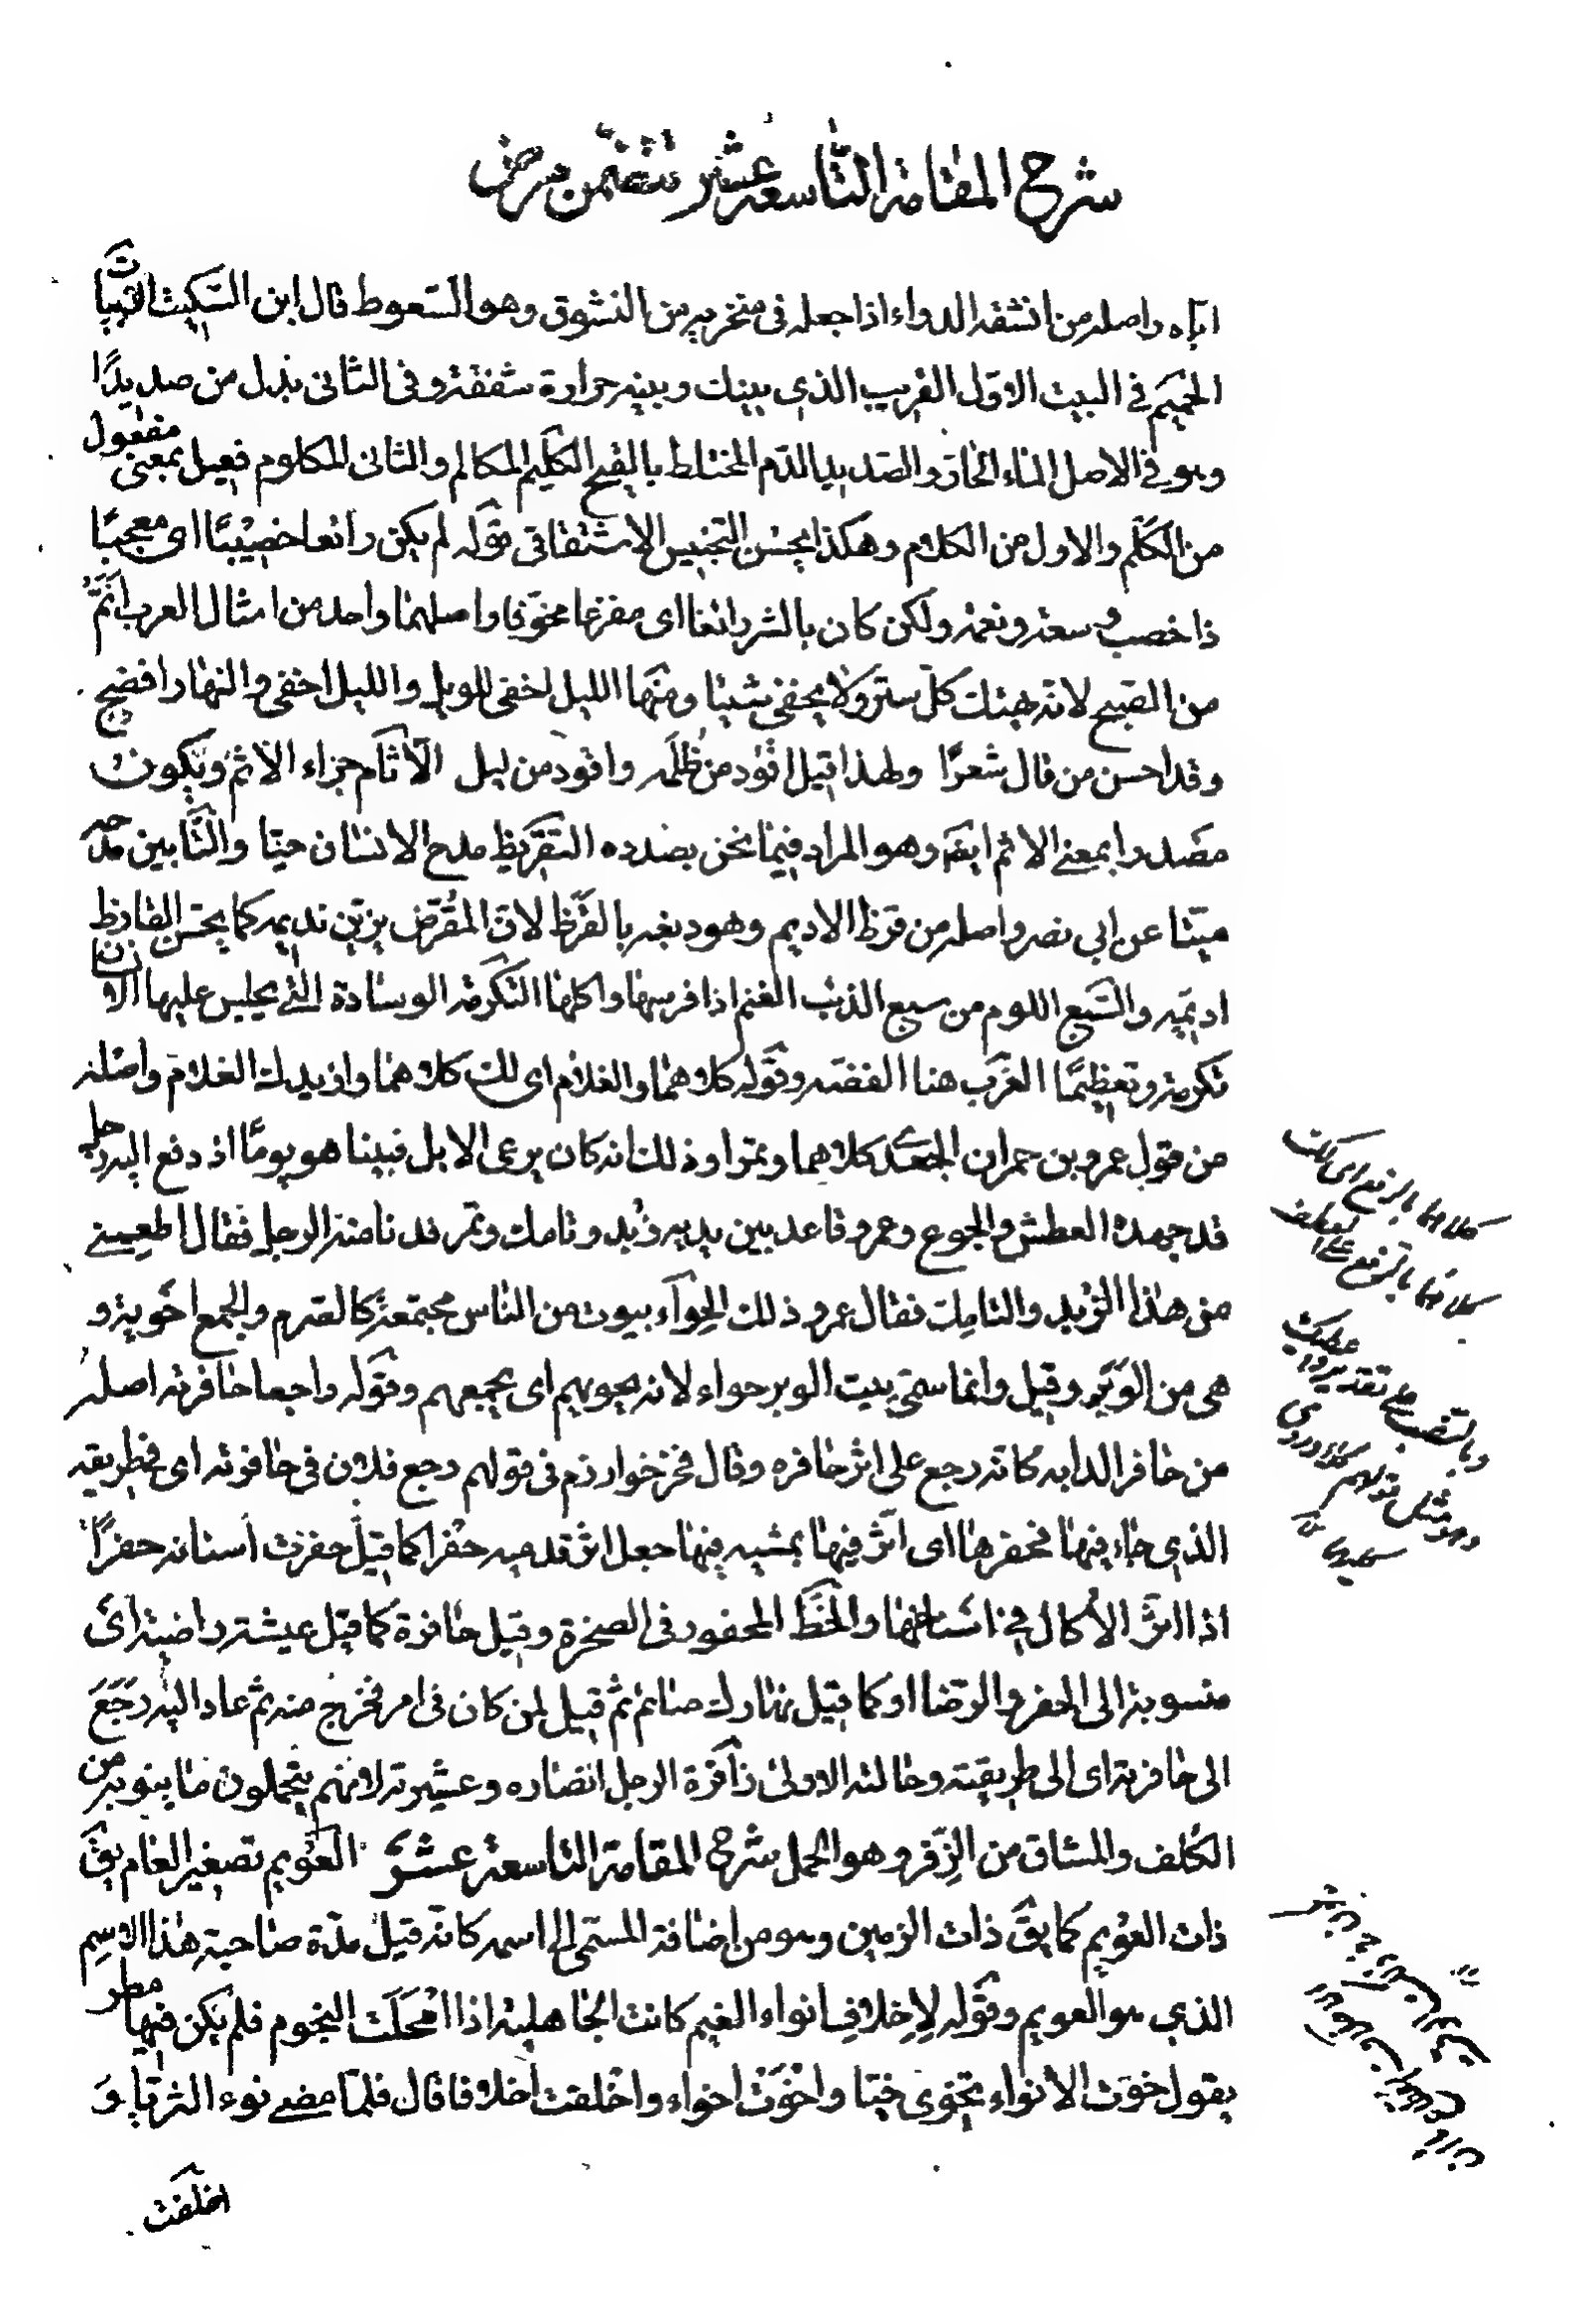 شرح المقامة التاسعة عشر تتضمن مرض
اياه واصله من انشقه الدواء اذا جعله فى منخريه من النشوق وهو السعوط قال ابن السكيت
الحميم في البيت الاول القريب الذي بينك وبينه حرارة شفقة وفى الثانى بدل من صديدًا
وهو في الاصل الماء الحار والصديد الدم المختلط بالقيح الكليم المكالم والثانى المكلوم فعيل بمعنى مفعول
من الكَلْم والاول من الكلام وهكذا يحسن التجنيس الاشتقاقى قوله لم يكن رائعا خصيبًا اى معجبًا
ذا خصب وسعة ونعمة ولكن كان بالشر رائعا اى مفزعا مخوفا واصلهما واحد من امثال العرب انمُّ
من الصبح لانه يهتك كل ستر ولا يخفى شيئا ومنها الليل اخفى للويل والليل اخفى والنهار افضح
وقد احسن من قال شعرًا ولهذا قيل اقود من ظُلمه واقود من ليل الآثام جزاء الاثم ويكون
مصدرا بمعنى الاثم ايضا وهو المراد فيما نحن بصدده التقريظ مدح الانسان حيا والتأبين مدحه
ميتا عن ابى نصر واصله من قرظ الاديم وهو دبغه بالقَرَظ لان المقرض يزين نديمه كما يحسن القارظ
اديمه والسَّبع اللوم من سبع الذئب الغنم اذا فرسها واكلها التكرمة الوسادة التى يجلس عليها
تكرمة وتعظيمًا الغَرَب هنا الفضة وقوله كلاهما والغلام اى لك كلاهما وازيدك الغلام واصله
من قول عمرو بن حمران الجعدى كلاهما وتمرا وذلك انه كان يرعى الابل فبينا هو يومًا اذ دفع اليه رجل
قد جهده العطش والجوع وعمرو قاعد بين يديه زُبد وتامك وتمر فدنا منه الرجل فقال اطعمنى
من هذا الزُبد والتامِك فقال عمرو ذلك الحِواء بيوت من الناس مجتمعة كالصرم والجمع احوية و
هى من الوَبَر وقيل وانما سمى بيت الوبر حواء لانه يحويهم اى يجمعهم وقوله راجعا حافرته اصله
من حافر الدابه كانه رجع على اثر حافره وقال فخر خوارزم فى قولهم رجع فلان فى حافرته اى فى طريقه
الذي جاء فيها فحفرها اى اثر فيها بمشيه فيها جعل اثر قدميه حفرا كما قيل حفرت أسنانه حفرًا
اذا اثر الاُكال في اسناخها والخط المحفور فى الصخرة وقيل حافرة كما قيل عيشة راضية اى
منسوبة الى الحفر والرضا او كما قيل نهارك صائم ثم قيل لمن كان فى امر فخرج منه ثم عاد اليه رَجَعَ
الى حافرته اى الى طريقته وحالته الاولى زافرة الرجل انصاره وعشيرته لانهم يتحملون ما ينوبه من
الكُلف والمشاق من الزِفر وهو الحمل شرح المقامة التاسعة عشر العُويم تصغير العام يق
ذات العُويم كما يق ذات الزمين وهو من اضافة المسمى الى اسمه كانه قيل مدة صاحبة هذا الاسم
الذي هو العويم وقوله لإخلافِ انواء الغيم كانت الجاهلية اذا امْحَلَت النجوم فلم يكن فيها مطر
يقول خَوت الأنواء تخوى خيا واخْوَت اخواء واخلفت اخلافا قال فلما مضى نوء الثريا وَ
اخلفت
كلاهما بالرفع اى لك